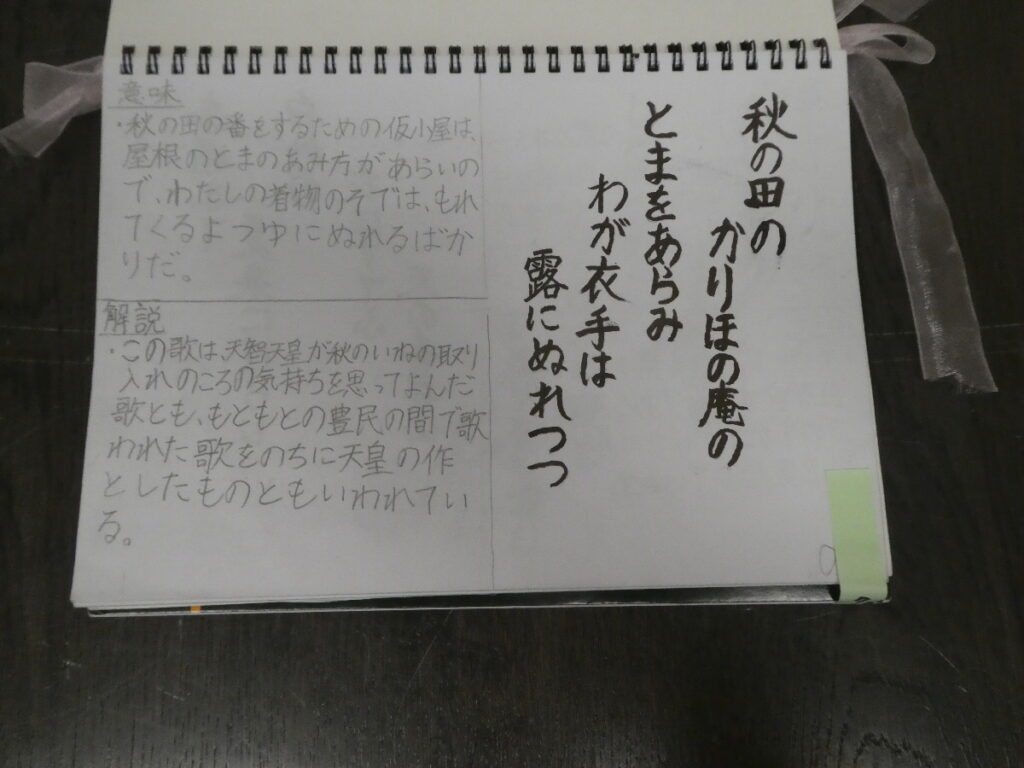 秋の田の
かりほの庵の
とまをあらみ
わが衣手は
露にぬれつつ
意味
・秋の田の番をするための仮小屋は、
屋根のとまのあみ方があらいの
で、わたしの着物のそでは、もれ
てくるよつゆにぬれるばか
りだ。
解説
・この歌は、天智天皇が秋のいねの取り
入れのころの気持ちを思ってよんだ
歌とも、もともとの豊民の間で歌
われた歌をのちに天皇の作
としたものともいわれてい
る。